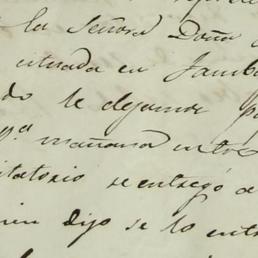 la Señora Doña
situada en Jamb
do le dejamos pa
mañana entre
itatorio se entregó a
ien dijo se lo entr